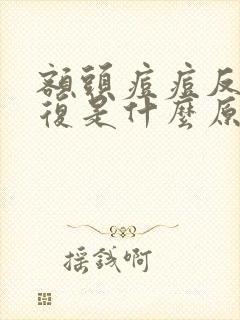 額頭痘痘反
復是什麼原
採錢啊